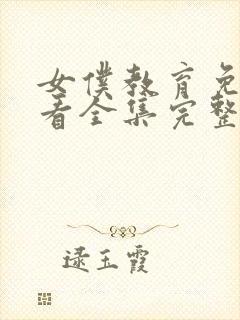 女僕教育免
看全集完整
逯玉霞